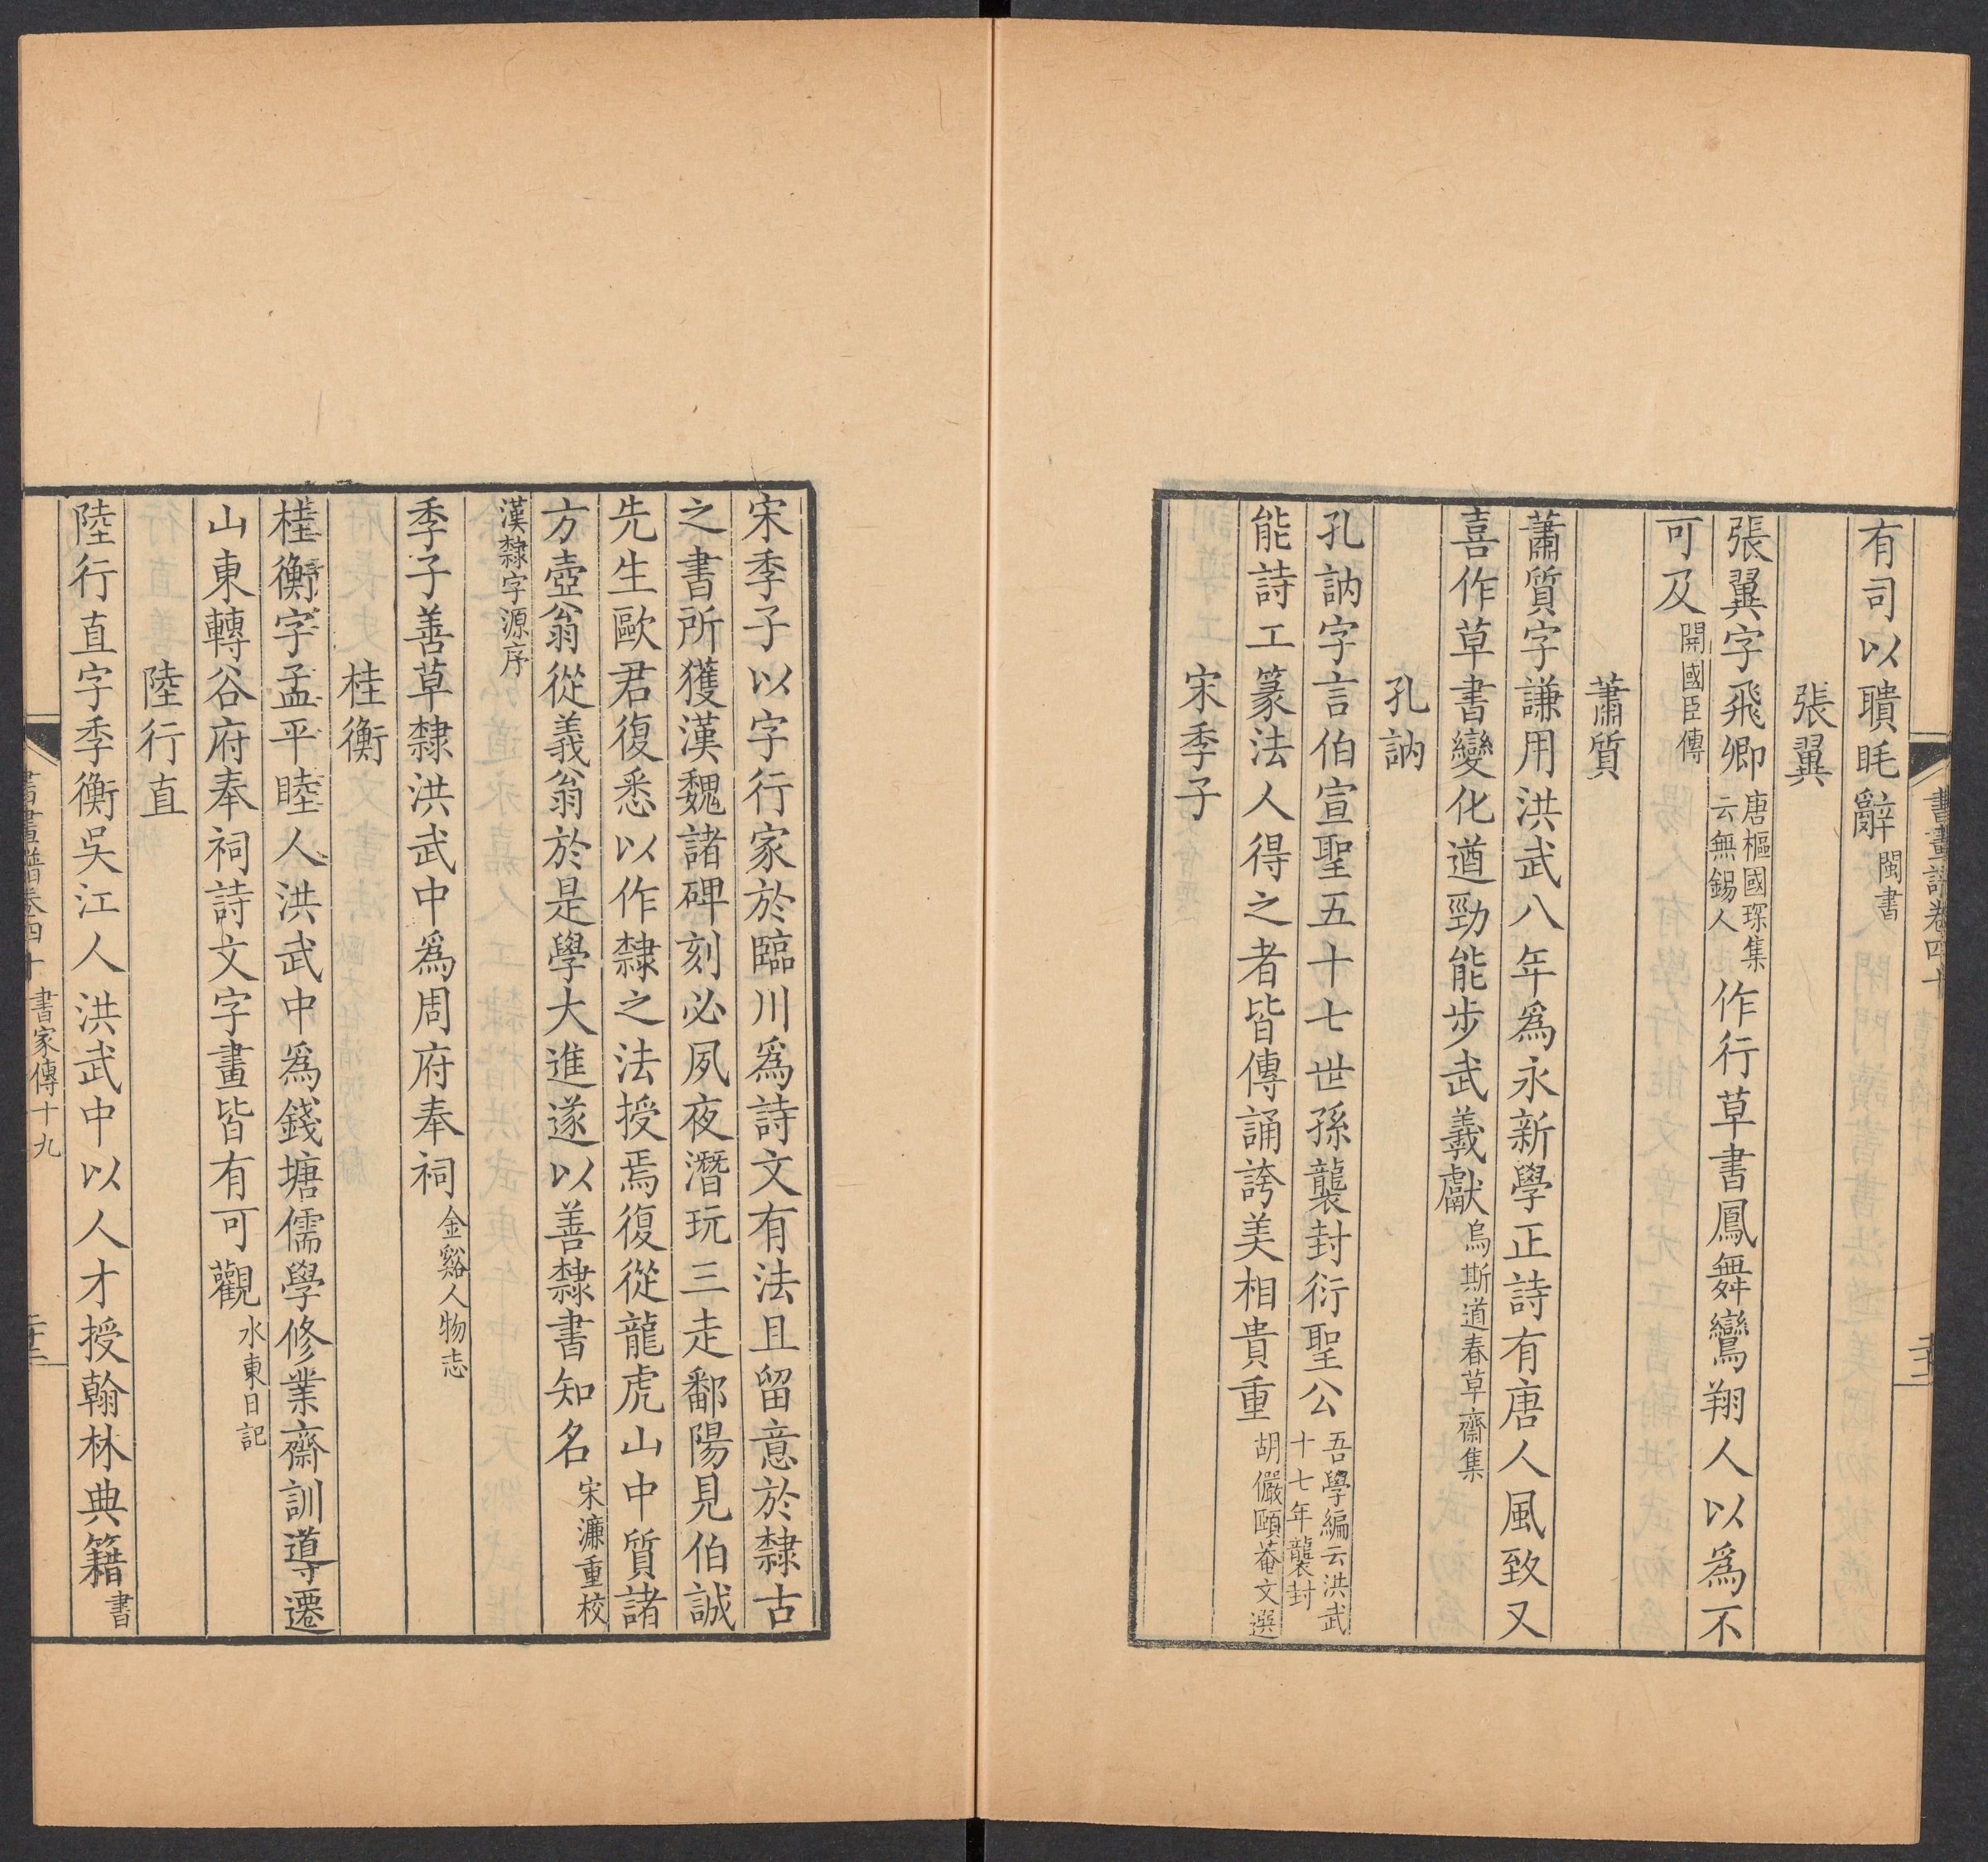 書畫譜卷四十
有司以聵眊辭閩書
張翼
張翼字飛卿唐樞國琛集云無錫人作行草書鳳舞鸞翔人以為不
可及開國臣傳
蕭質
蕭質字謙用洪武八年爲永新學正詩有唐人風致又
喜作草書變化遒勁能步武羲獻烏斯道春草齋集
孔訥
孔訥字言伯宣聖五十七世孫襲封衍聖公吾學編云洪武十七年襲封
能詩工篆法人得之者皆傳誦誇美相貴重胡儼頤菴文選
宋季子
宋季子以字行家於臨川爲詩文有法且留意於隸古
之書所獲漢魏諸碑刻必夙夜潛玩三走鄱陽見伯誠
先生歐君復悉以作隸之法授焉復從龍虎山中質諸
方壺翁從義翁於是學大進遂以善隸書知名宋濂重校
漢隸字源序
季子善草隸洪武中爲周府奉祠金谿人物志
桂衡
桂衡字孟平睦人洪武中爲錢塘儒學修業齋訓導遷
山東轉谷府奉祠詩文字畫皆有可觀水東日記
陸行直
陸行直字季衡吳江人洪武中以人才授翰林典籍書
書畫譜卷四十 書家傳十九